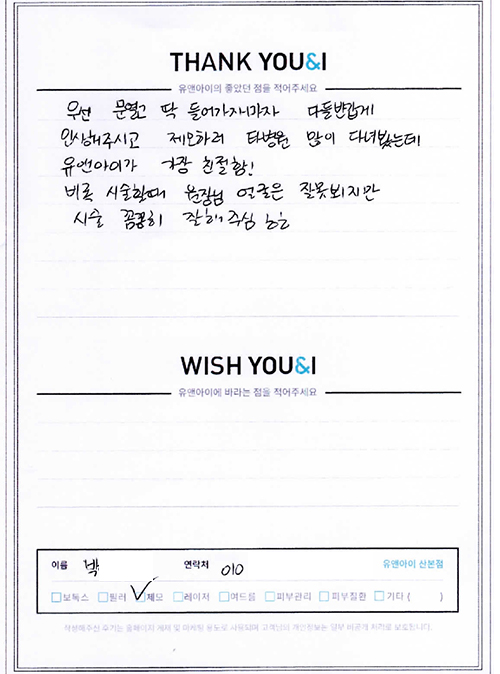 THANK YOU&I
유앤아이의 좋았던 점을 적어주세요
우선 문열고 딱 들어가자마자 다들반갑게
인사해주시고 제모하러 타병원 많이 다녀봤는데
유앤아이가 가장 친절함!
비록 시술할때 원장님 얼굴은 잘못뵈지만
시술 꼼꼼히 잘해주심 ㅎㅎ
WISH YOU&I
유앤아이에 바라는 점을 적어주세요
이름 박 연락처 010 유앤아이 산본점
보톡스 필러 제모 레이저 여드름 피부관리 피부질환 기타 ( )
작성해주신 후기는 홈페이지 게재 및 마케팅 용도로 사용되며 고객님의 개인정보는 일부 비공개 처리로 보호됩니다.